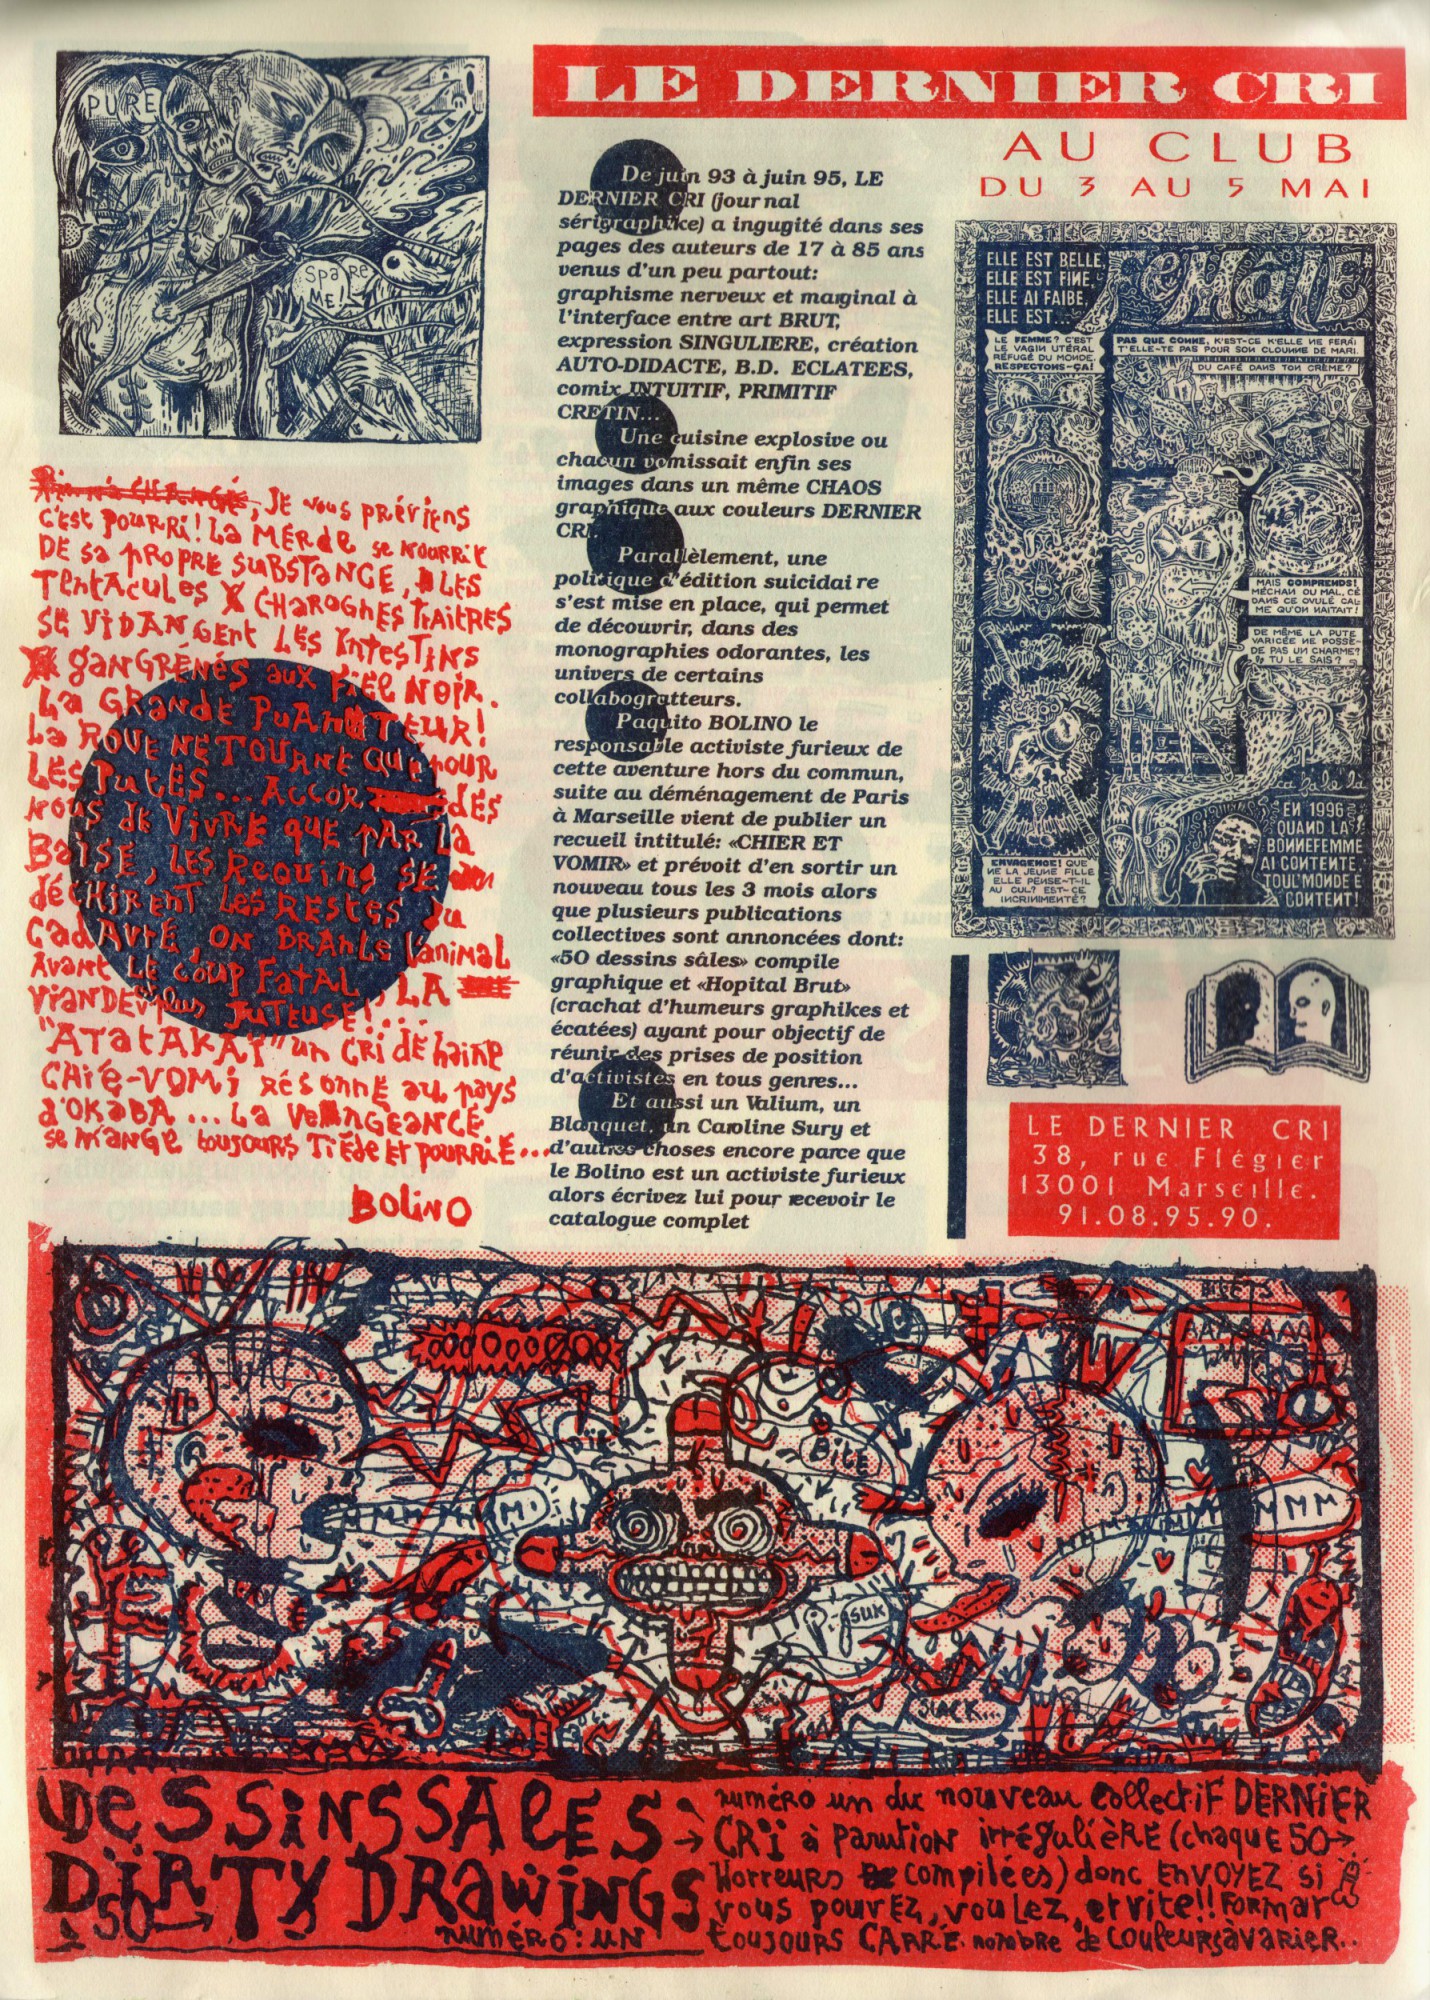 PURE
SPARE
ME!
LE DERNIER CRI
AU CLUB
DU 3 AU 5 MAI
De juin 93 à juin 95, LE
DERNIER CRI (jour nal
sérigraphike) a ingugité dans ses
pages des auteurs de 17 à 85 ans
venus d'un peu partout:
graphisme nerveux et marginal à
l'interface entre art BRUT,
expression SINGULIERE, création
AUTO-DIDACTE, B.D. ECLATEES,
comix INTUITIF, PRIMITIF
CRETIN...
Une cuisine explosive ou
chacun vomissait enfin ses
images dans un même CHAOS
graphique aux couleurs DERNIER
CRI.
Parallèlement, une
politique d'édition suicidai re
s'est mise en place, qui permet
de découvrir, dans des
monographies odorantes, les
univers de certains
collabogratteurs.
Paquito BOLINO le
responsable activiste furieux de
cette aventure hors du commun,
suite au déménagement de Paris
à Marseille vient de publier un
recueil intitulé: «CHIER ET
VOMIR» et prévoit d'en sortir un
nouveau tous les 3 mois alors
que plusieurs publications
collectives sont annoncées dont:
«50 dessins sâles» compile
graphique et «Hopital Brut»
(crachat d'humeurs graphikes et
écatées) ayant pour objectif de
réunir des prises de position
d'activistes en tous genres...
Et aussi un Valium, un
Blanquet, un Caroline Sury et
d'autres choses encore parce que
le Bolino est un activiste furieux
alors écrivez lui pour recevoir le
catalogue complet
, JE vous préviens
c'est pourri! La MERde se nourrit
DE sa propre substance, LES
Tentacules CHAROGNES TRAITRES
SE VIDANGENT LES INTESTINS
GANGRÉNÉS aux FIEL NOIR.
La GRANDE PUANTEUR!
La ROUE NE TOURNE QUE POUR
LES PUTES... ACCOR DES
NOUS de VIVRE que PAR la
BAISE, LES REQUINS SE
déCHIRENT LES RESTES du
CADAVRE, ON BRANLE l'animal
Avant LE coup FATAL, LA
VIANDE plus JUTEUSE!...
"ATATAKAÏ" un CRI de haine
CHIÉ-VOMi résonne au pays
d'OKABA... La VENGEANCE
se MANGE toujours TIÈDE ET pourriE...
BOLINO
ELLE EST BELLE,
ELLE EST FINE,
ELLE AI FAIBE,
ELLE EST...
FEMALE
LE FEMME? C'EST
LE VAGIN UTÉRAL
RÉFUGÉ DU MONDE.
RESPECTONS-ÇA!
PAS QUE CONNE, K'EST-CE K'ELLE NE FERAI
T'ELLE-TE PAS POUR SON CLOUNNE DE MARI.
DU CAFÉ DANS TON CRÈME?
MAIS COMPRENDS!
MÉCHAN OU MAL, CÉ
DANS CE OVULÉ CAL
ME QU'ON HAITAIT!
DE MÊME LA PUTE
VARICÉE NE POSSÈ-
DE PAS UN CHARME?
TU LE SAIS?
ENVAGENCE! QUE
NE LA JEUNE FILLE
ELLE PENSE-T-IL
AU CUL? EST-CE
INCRIMIMENTÉ?
EN 1996
QUAND LA
BONNEFEMME
AI CONTENTE,
TOUL'MONDE E
CONTENT!
LE DERNIER CRI
38, rue Flégier
13001 Marseille.
91.08.95.90.
BILE
SUK
SLACK...
MMM
DESSINS SALES
DIRTY DRAWINGS
50
numéro: UN
numéro un du nouveau collectif DERNIER
CRI à parution irrégulière (chaque 50
Horreurs compilées) donc ENVOYEZ si
vous pouvez, voulez, et vite!! FORMAT
toujours CARRÉ. nombre de couleurs à varier..